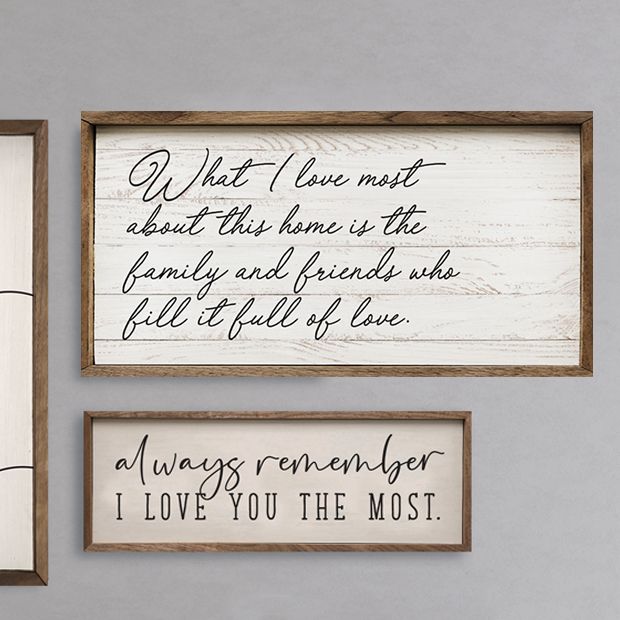 What I love most
about this home is the
family and friends who
fill it full of love.
always remember
I LOVE YOU THE MOST.